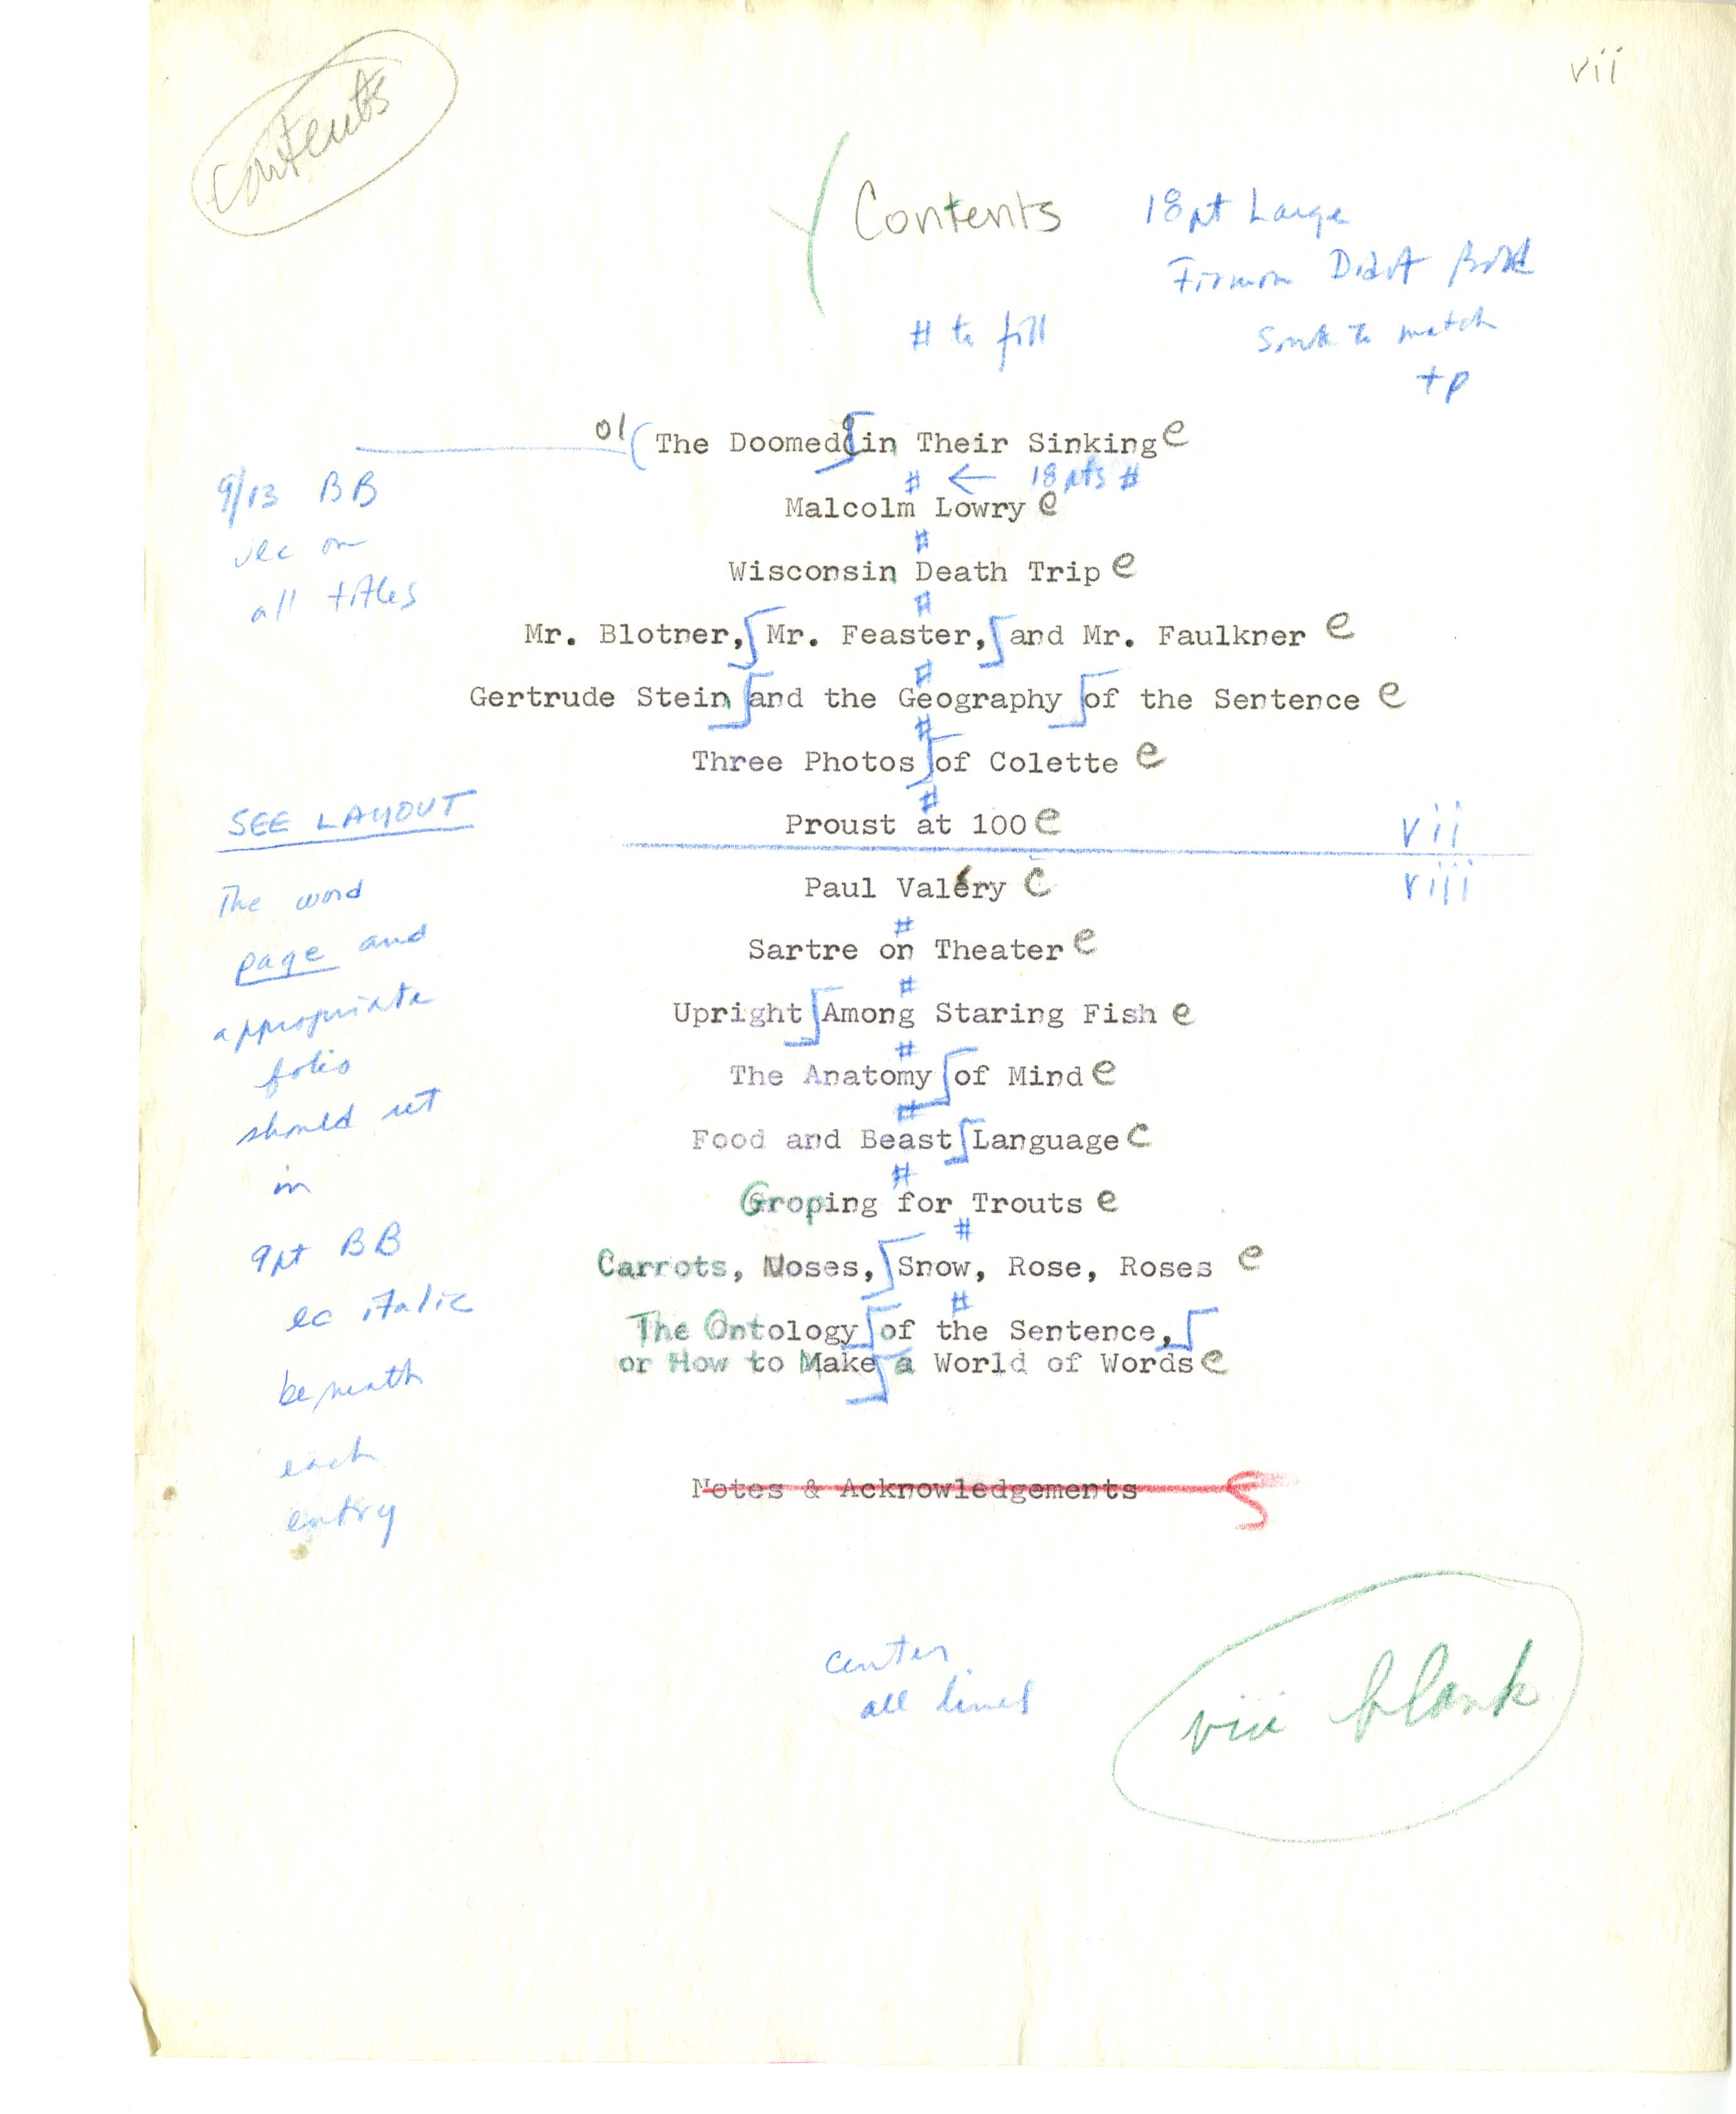 contents
vii
Contents
18pt Large
Firmin Didot Bold
to match
tp
# to fill
The Doomed in Their Sinking e
# ← 18 pts #
9/13 BB
ulc on
all titles
Malcolm Lowry e
#
Wisconsin Death Trip e
#
Mr. Blotner, Mr. Feaster, and Mr. Faulkner e
#
Gertrude Stein and the Geography of the Sentence e
#
Three Photos of Colette e
#
Proust at 100 e
vii
viii
Paul Valéry e
#
Sartre on Theater e
#
Upright Among Staring Fish e
#
The Anatomy of Mind e
#
Food and Beast Language e
#
Groping for Trouts e
#
Carrots, Noses, Snow, Rose, Roses e
#
The Ontology of the Sentence,
or How to Make a World of Words e
Notes & Acknowledgements
SEE LAYOUT
The word
page and
appropriate
folio
should set
in
9pt BB
lc italic
beneath
each
entry
center
all lines
viii blank